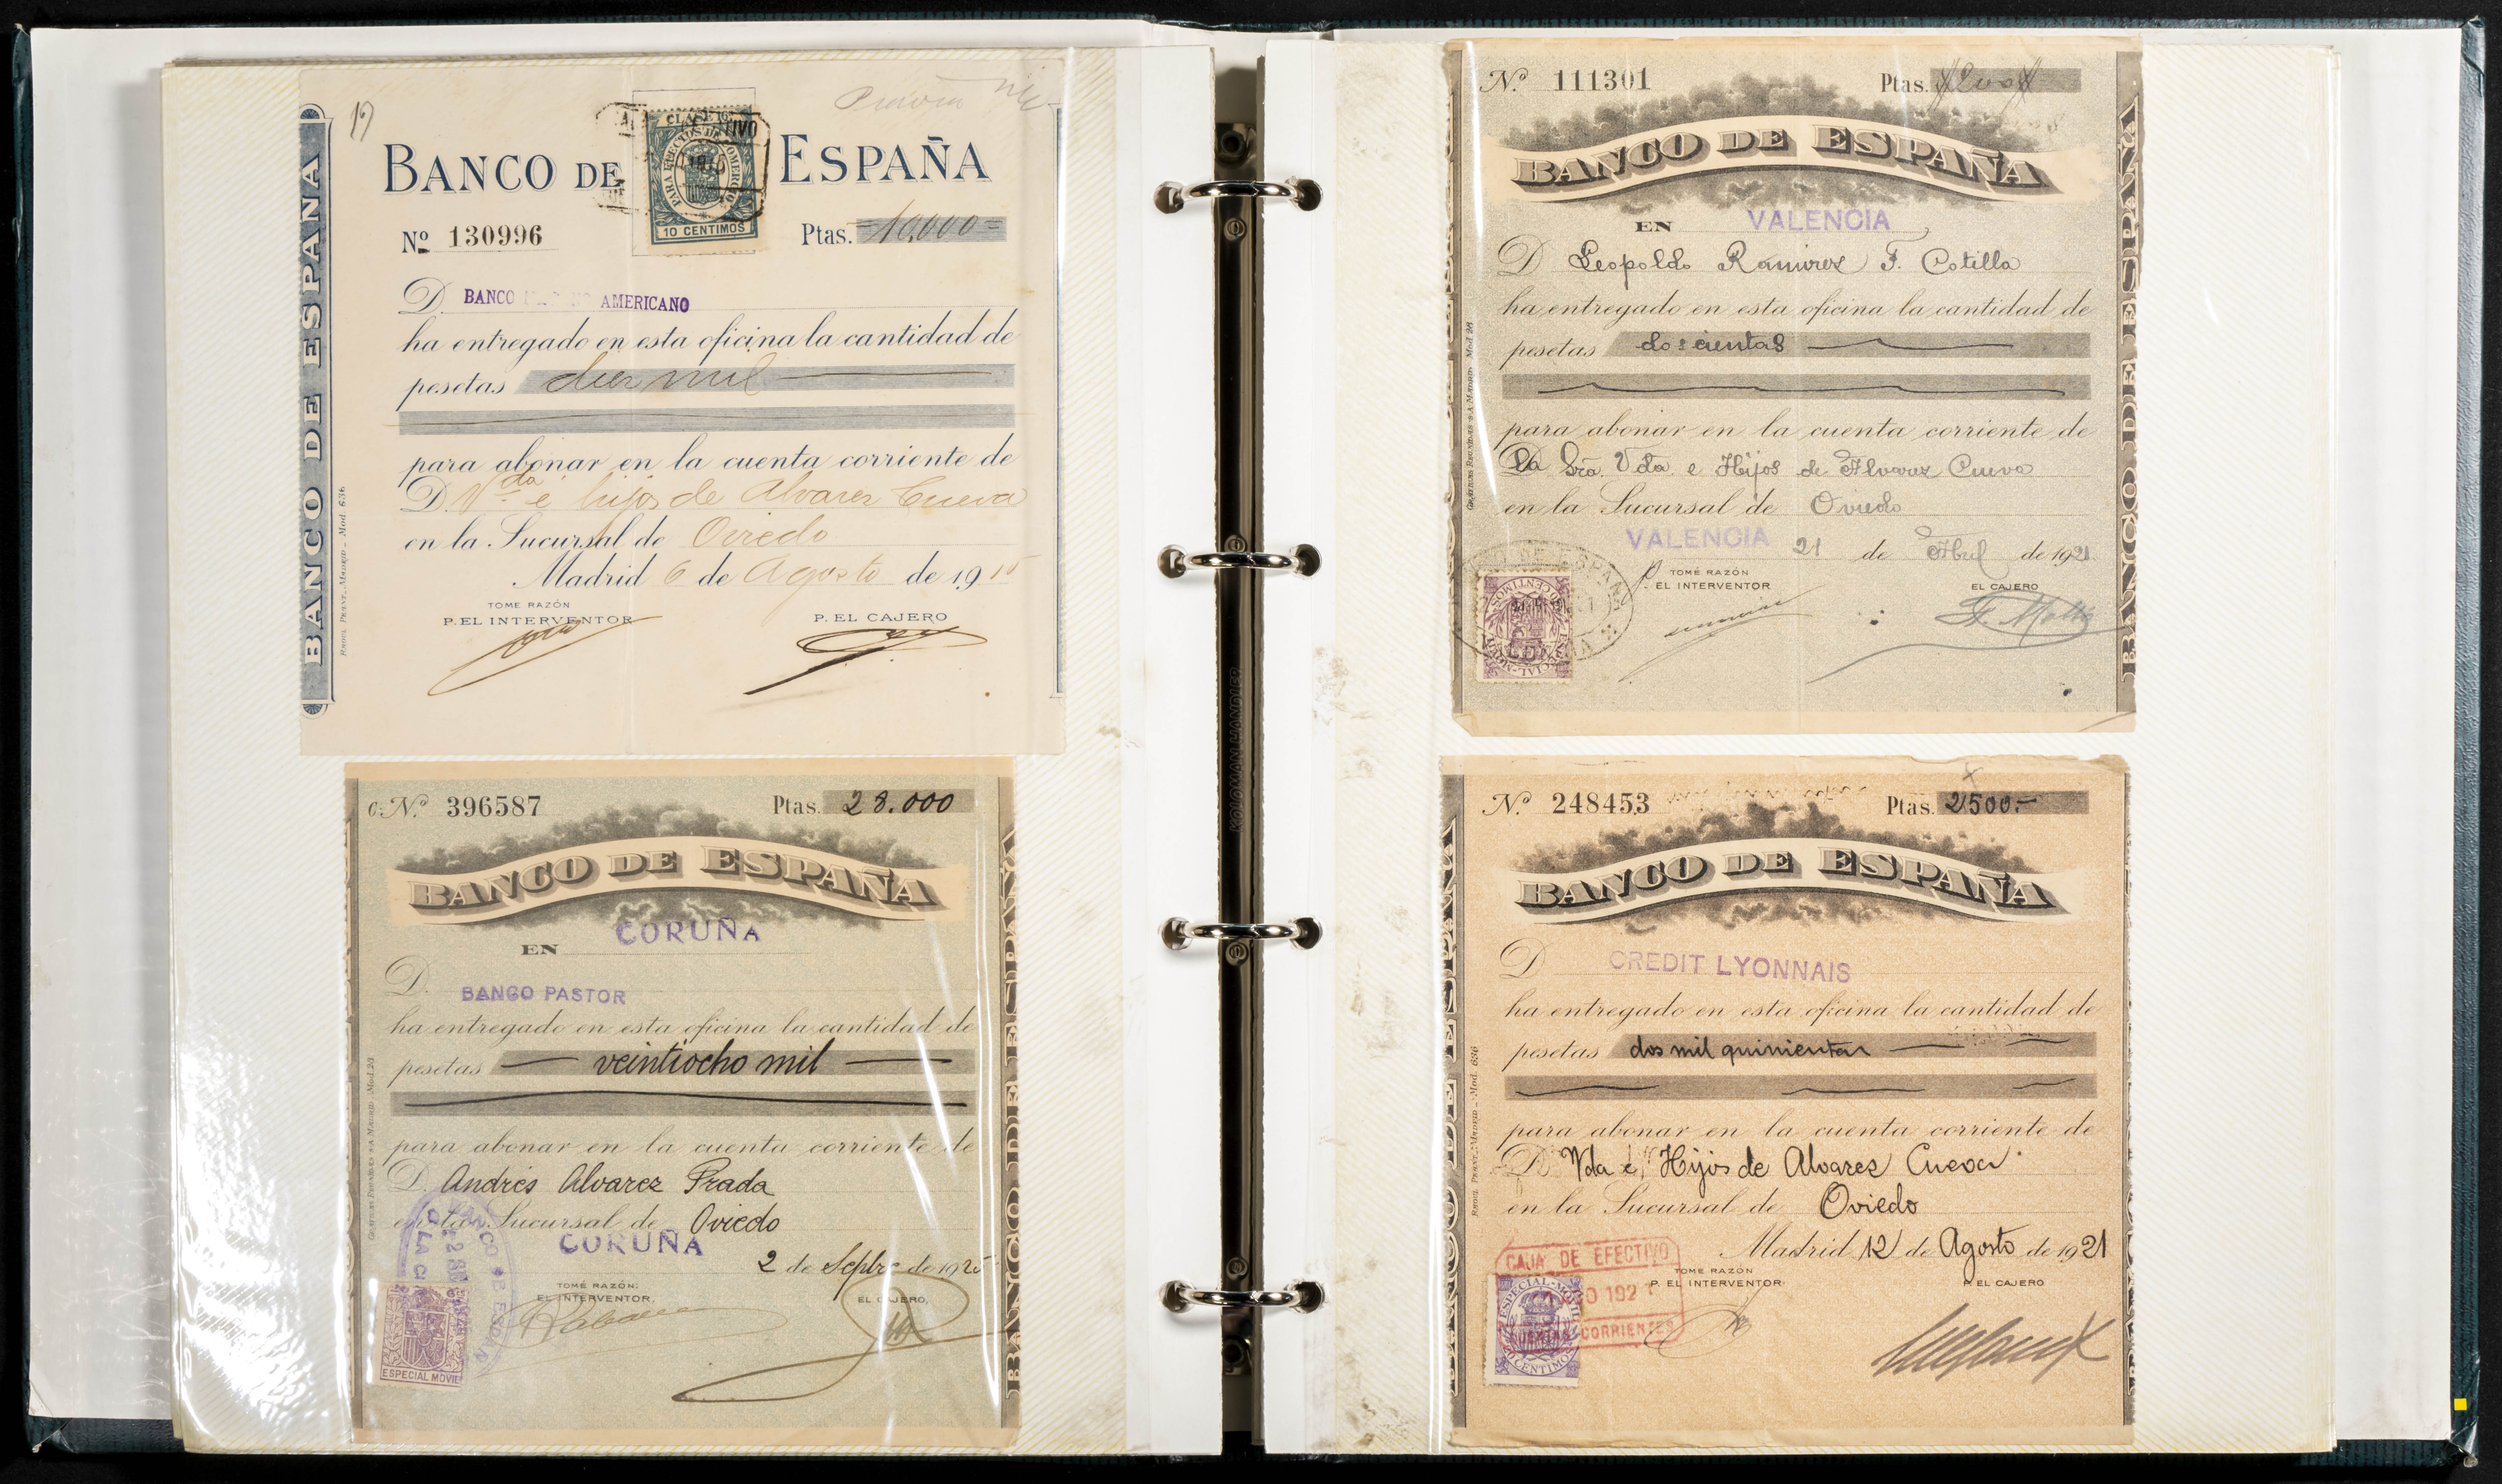 19
BANCO DE ESPAÑA
CLASE 16ª
PARA EFECTOS DE COMERCIO
10 CENTIMOS
Nº 130996 Ptas. 10.000
D. BANCO AMERICANO
ha entregado en esta oficina la cantidad de
pesetas diez mil
para abonar en la cuenta corriente de
D. Vda é hijos de Alvarez Cueva
en la Sucursal de Oviedo
Madrid 6 de Agosto de 191
TOME RAZÓN
P. EL INTERVENTOR P. EL CAJERO
BANCO DE ESPAÑA
Mod. 636
C. Nº 396587 Ptas. 28.000
BANCO DE ESPAÑA
EN CORUÑA
D. BANCO PASTOR
ha entregado en esta oficina la cantidad de
pesetas veintiocho mil
para abonar en la cuenta corriente de
D. Andrés Alvarez Prada
en la Sucursal de Oviedo
CORUÑA
2 de Septbre de 1925
TOME RAZÓN:
EL INTERVENTOR, EL CAJERO,
ESPECIAL MOVIL
BANCO DE ESPAÑA
Nº 111301 Ptas.
BANCO DE ESPAÑA
EN VALENCIA
D Leopoldo Ramirez F. Cotilla
ha entregado en esta oficina la cantidad de
pesetas doscientas
para abonar en la cuenta corriente de
La Sra. Vda. e Hijos de Alvarez Cueva
en la Sucursal de Oviedo
VALENCIA 21 de Abril de 1921
TOME RAZÓN
P. EL INTERVENTOR EL CAJERO
BANCO DE ESPAÑA
Nº 248453 Ptas. 2500.-
BANCO DE ESPAÑA
D CREDIT LYONNAIS
ha entregado en esta oficina la cantidad de
pesetas dos mil quinientas
para abonar en la cuenta corriente de
D Vda é Hijos de Alvarez Cueva
en la Sucursal de Oviedo
Madrid 12 de Agosto de 1921
CAJA DE EFECTIVO
CUENTAS CORRIENTES
TOME RAZÓN
P. EL INTERVENTOR P. EL CAJERO
ESPECIAL MOVIL
BANCO DE ESPAÑA
Mod. 636